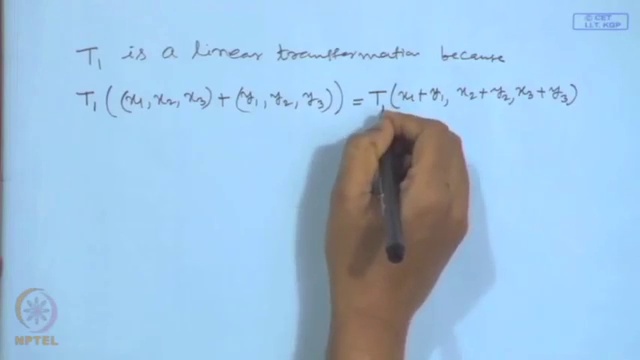 © CET
I.I.T. KGP
T₁ is a linear transformation because
T₁((x₁, x₂, x₃) + (y₁, y₂, y₃)) = T₁(x₁+y₁, x₂+y₂, x₃+y₃)
NPTEL